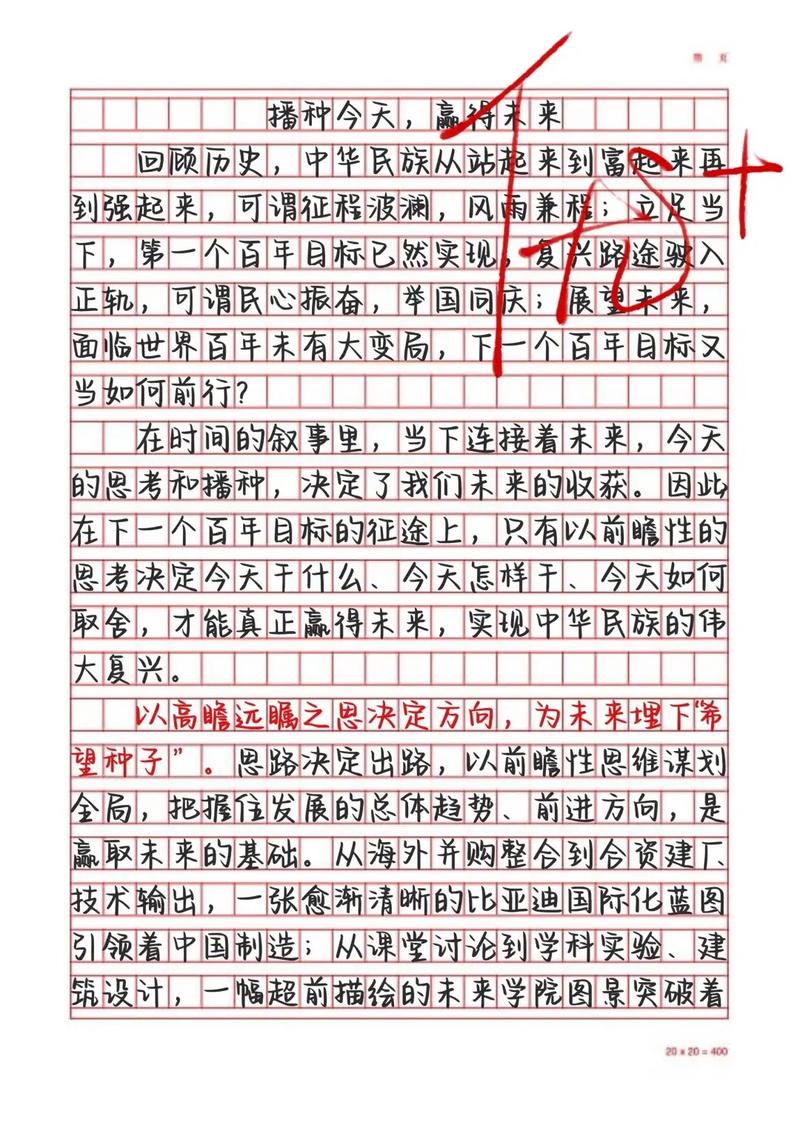 第 页
播种今天，赢得未来
回顾历史，中华民族从站起来到富起来再
到强起来，可谓征程波澜，风雨兼程；立足当
下，第一个百年目标已然实现，复兴路途驶入
正轨，可谓民心振奋，举国同庆；展望未来，
面临世界百年未有大变局，下一个百年目标又
当如何前行？
在时间的叙事里，当下连接着未来，今天
的思考和播种，决定了我们未来的收获。因此
在下一个百年目标的征途上，只有以前瞻性的
思考决定今天干什么、今天怎样干、今天如何
取舍，才能真正赢得未来，实现中华民族的伟
大复兴。
以高瞻远瞩之思决定方向，为未来埋下“希
望种子”。思路决定出路，以前瞻性思维谋划
全局，把握住发展的总体趋势、前进方向，是
赢取未来的基础。从海外并购整合到合资建厂、
技术输出，一张愈渐清晰的比亚迪国际化蓝图
引领着中国制造；从课堂讨论到学科实验、建
筑设计，一幅超前描绘的未来学院图景突破着
20 x 20 = 400